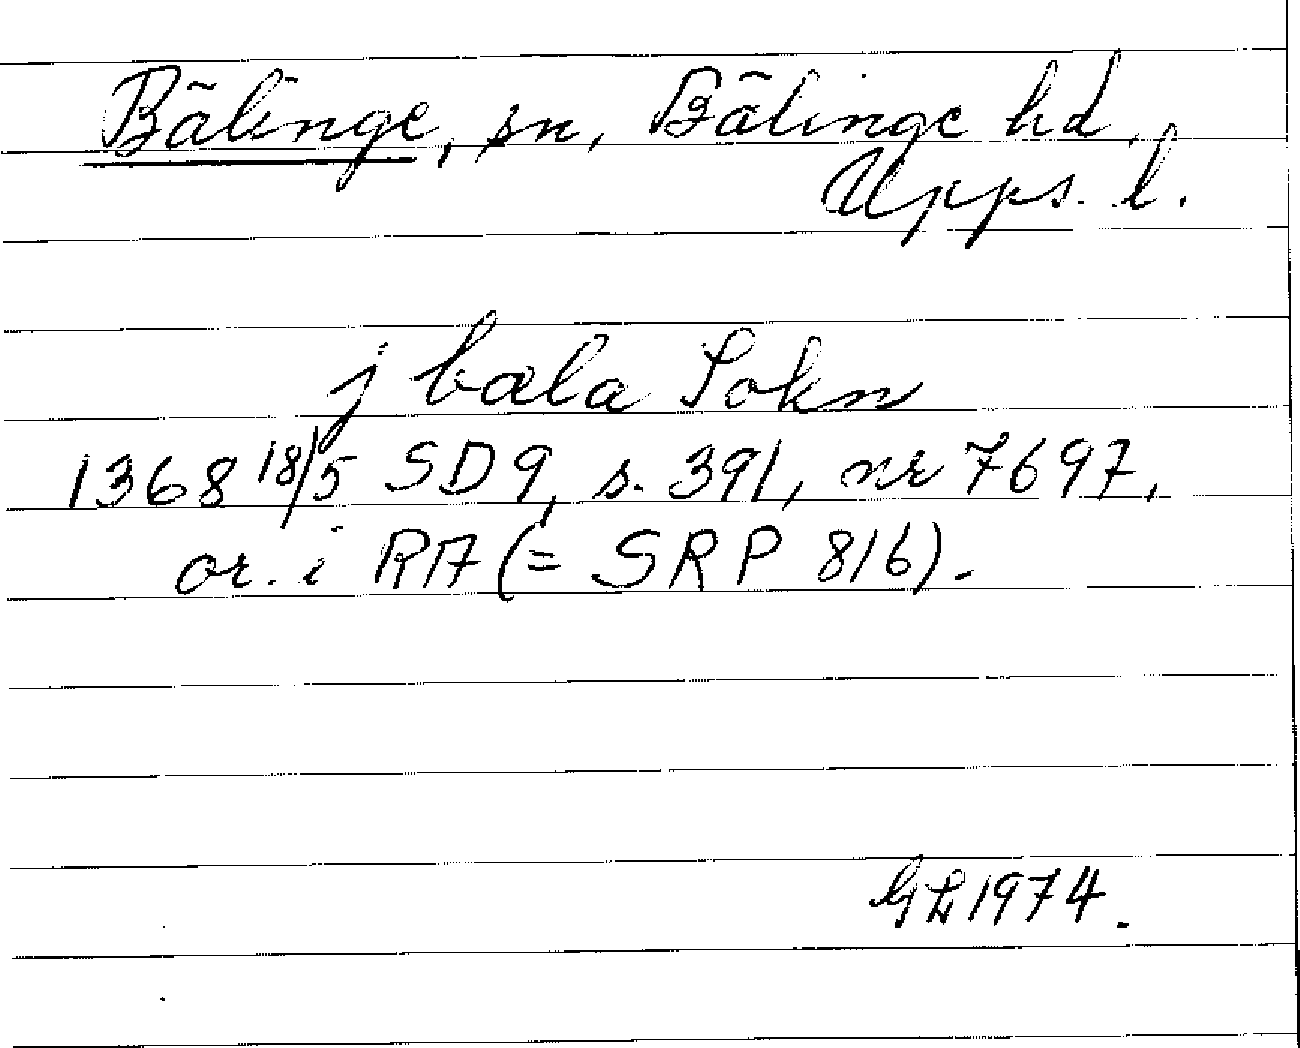 Bälinge, sn, Bälinge hd,
Upps. l.
j bæla Sokn
1368 18/5 SD9, s. 391, nr 7697,
or. i RA (= SRP 816).
GL 1974.